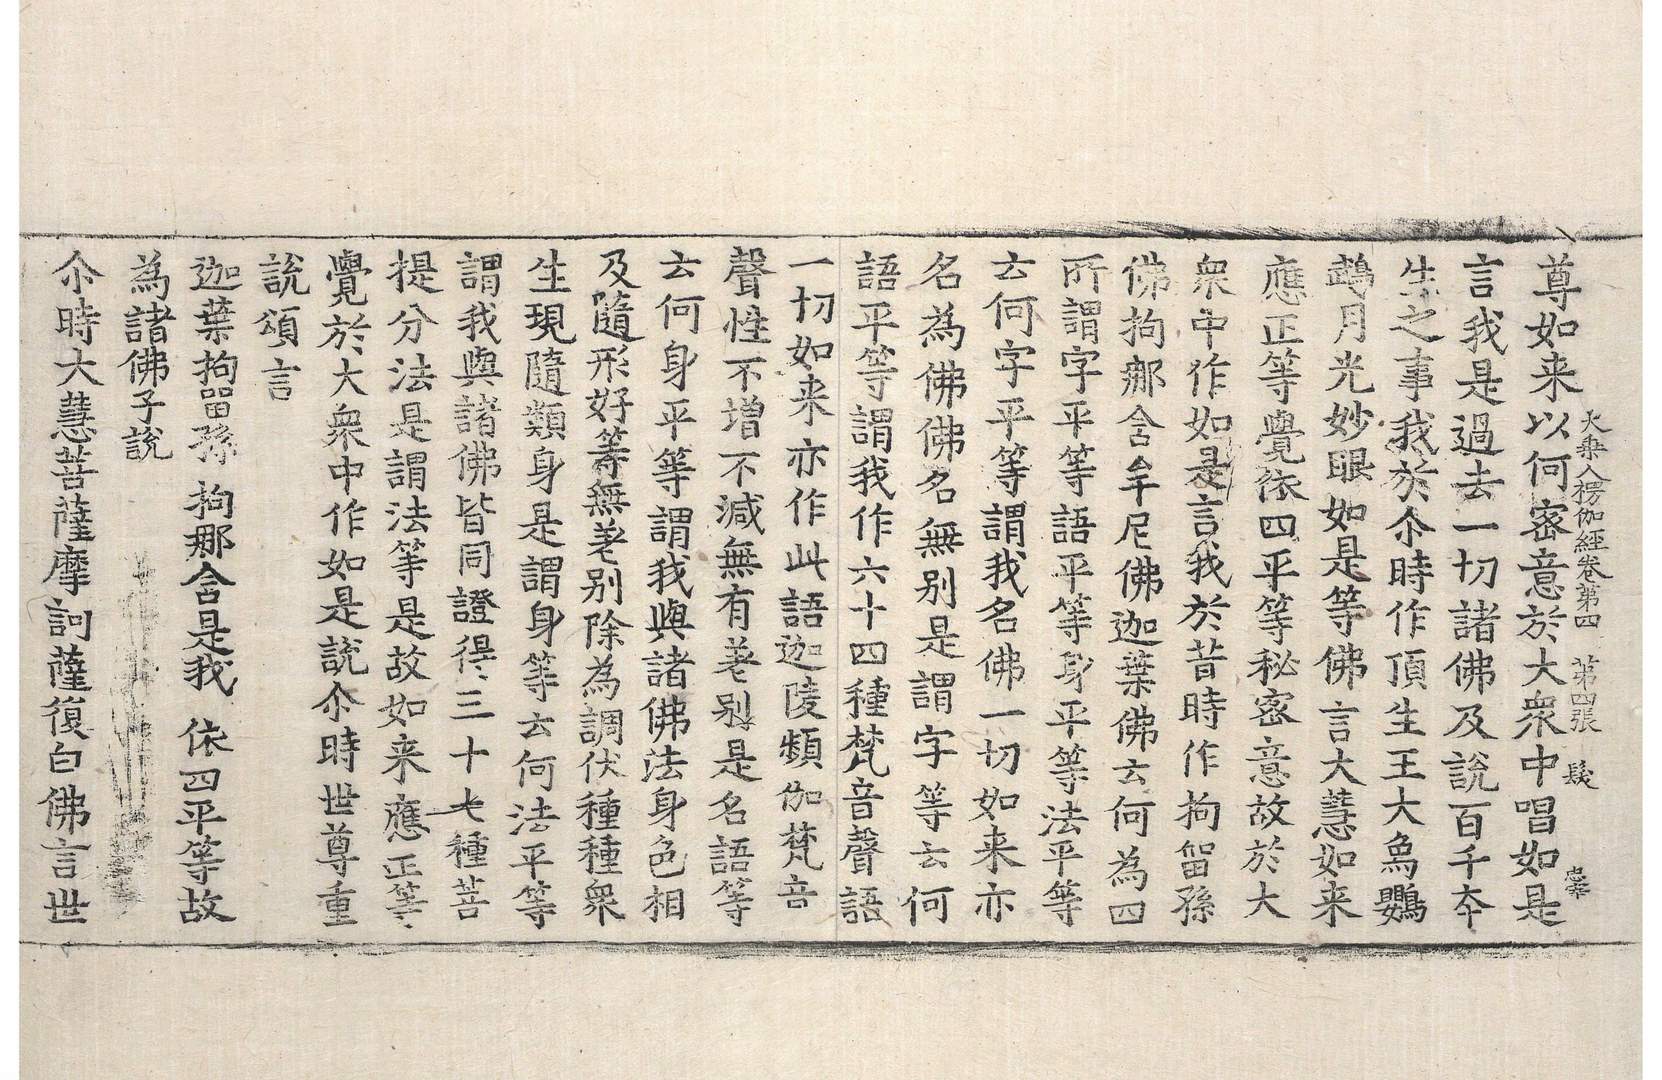 大乗入楞伽經卷第四 第四張 髮 忠
尊如来以何密意於大衆中唱如是
言我是過去一切諸佛及說百千夲
生之事我於尒時作頂生王大象鸚
鵡月光妙眼如是等佛言大慧如来
應正等覺依四平等秘密意故於大
衆中作如是言我於昔時作拘留孫
佛拘那含牟尼佛迦葉佛云何為四
所謂字平等語平等身平等法平等
云何字平等謂我名佛一切如来亦
名為佛佛名無別是謂字等云何
語平等謂我作六十四種梵音聲語
一切如来亦作此語迦陵頻伽梵音
聲性不增不減無有差別是名語等
云何身平等謂我與諸佛法身色相
及隨形好等無差别除為調伏種種衆
生現隨類身是謂身等云何法平等
謂我與諸佛皆同證得三十七種菩
提分法是謂法等是故如来應正等
覺於大衆中作如是說尒時世尊重
說頌言
迦葉拘留孫 拘那含是我 依四平等故
為諸佛子說
尒時大慧菩薩摩訶薩復白佛言世